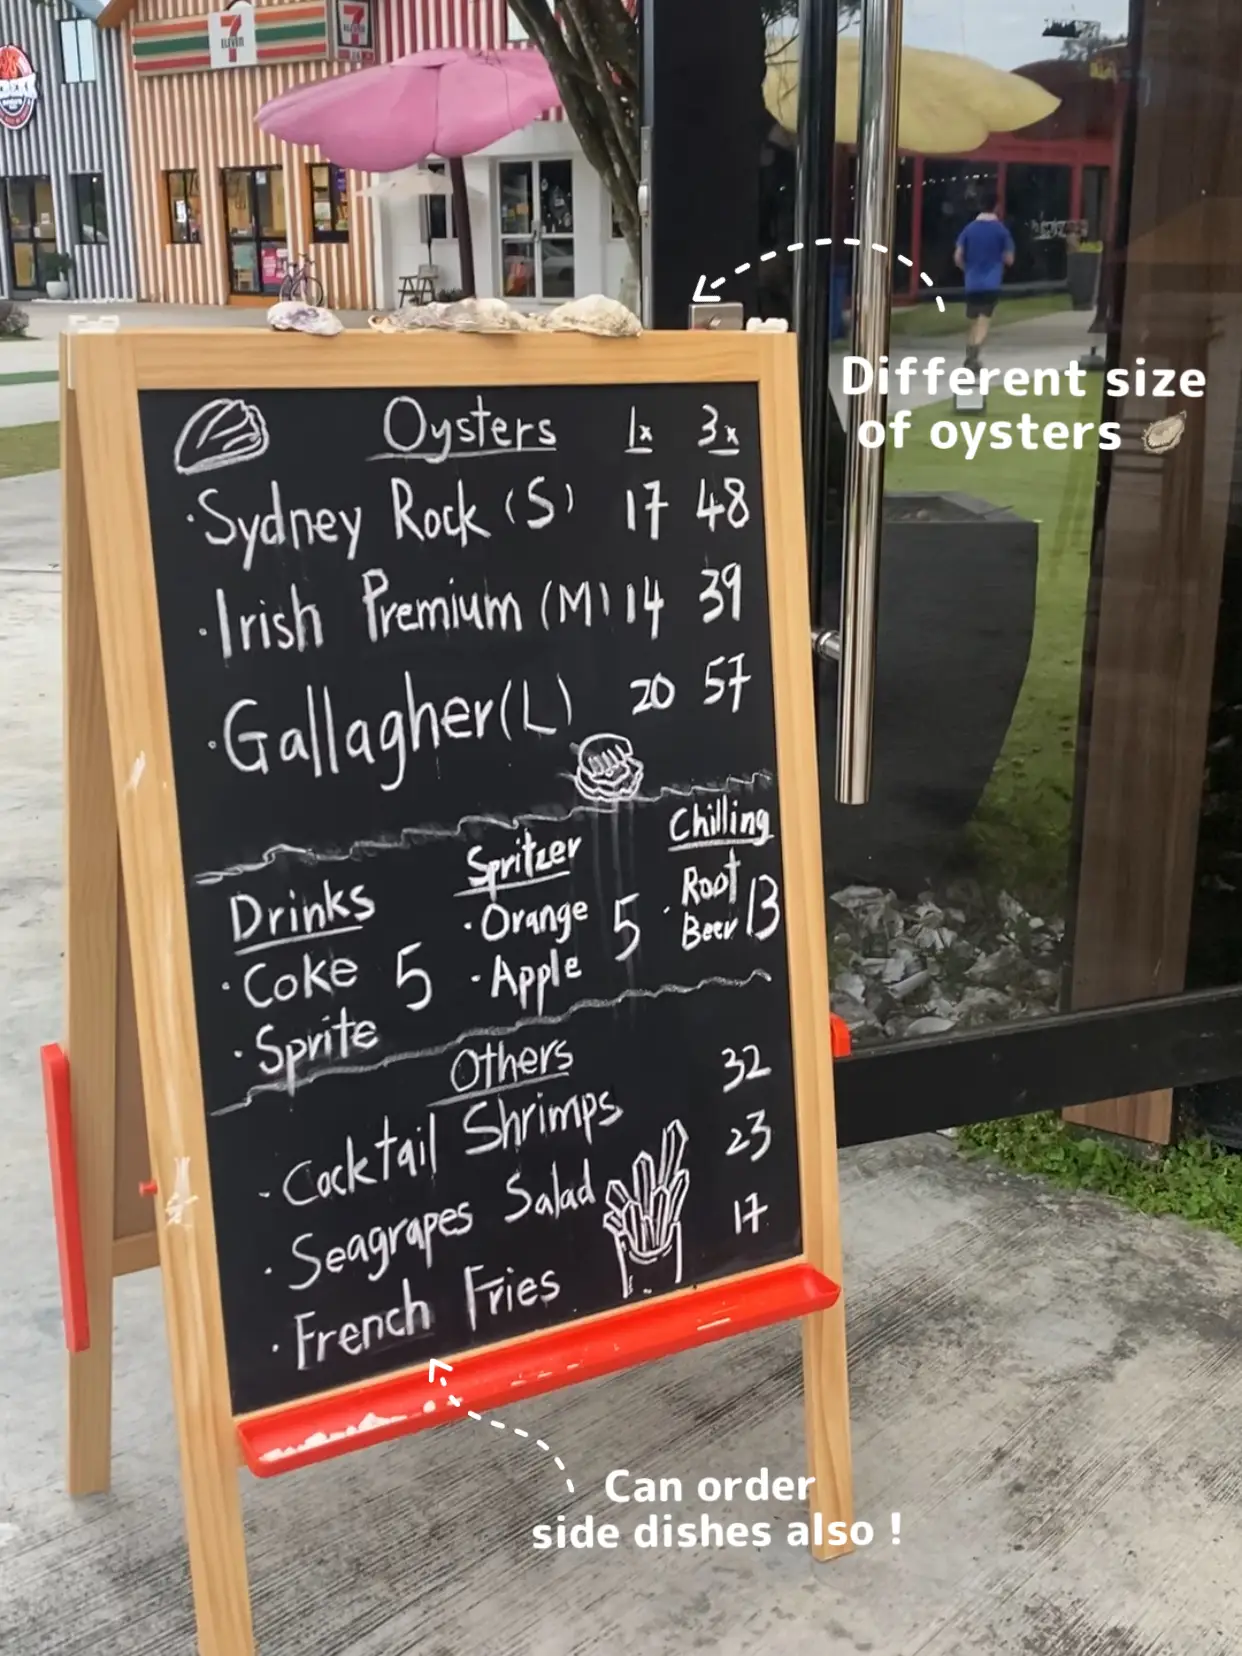 7
ELEVEN
7
ELEVEN
Different size
of oysters
Oysters 1x 3x
· Sydney Rock (S) 17 48
· Irish Premium (M) 14 39
· Gallagher (L) 20 57
Drinks
· Coke 5
· Sprite
Spritzer
· Orange 5
· Apple
Chilling
· Root
Beer 13
Others
· Cocktail Shrimps 32
· Seagrapes Salad 23
· French Fries 17
Can order
side dishes also !